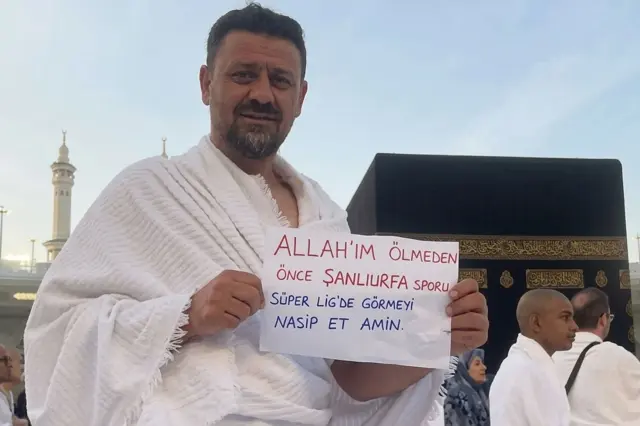 ALLAH'IM ÖLMEDEN
ÖNCE ŞANLIURFA SPORU
SÜPER LİG'DE GÖRMEYİ
NASİP ET AMİN.